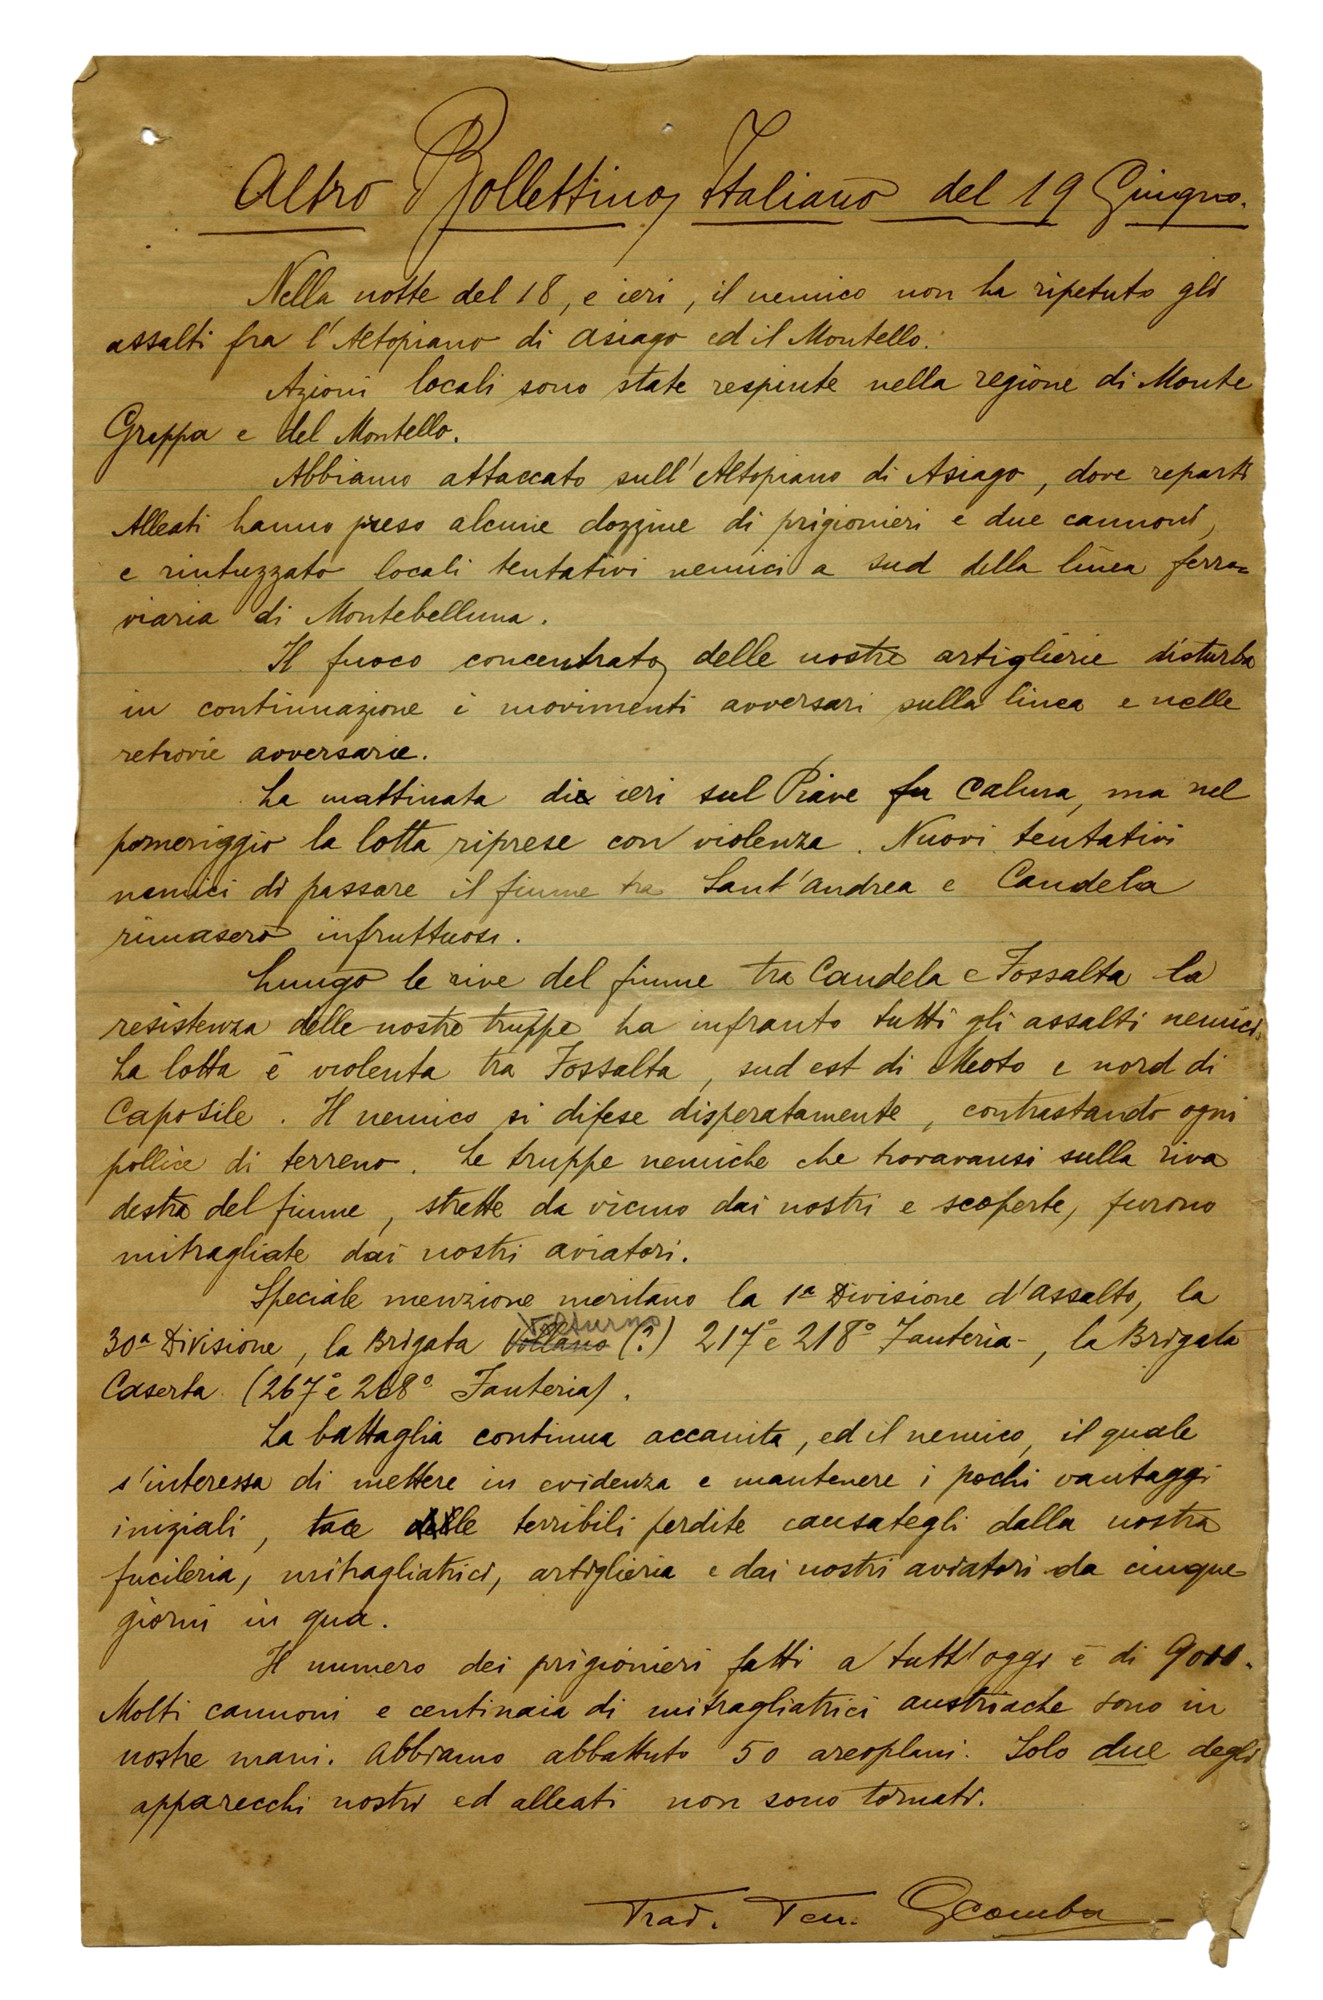 Altro Bollettino Italiano del 19 Giugno.
Nella notte del 18, e ieri, il nemico non ha ripetuto gli
assalti fra l'Altopiano di Asiago ed il Montello.
Azioni locali sono state respinte nella regione di Monte
Grappa e del Montello.
Abbiamo attaccato sull'Altopiano di Asiago, dove reparti
Alleati hanno preso alcune dozzine di prigionieri e due cannoni,
e rintuzzato locali tentativi nemici a sud della linea ferro=
viaria di Montebelluna.
Il fuoco concentrato delle nostre artiglierie disturba
in continuazione i movimenti avversari sulla linea e nelle
retrovie avversarie.
La mattinata di ieri sul Piave fu calma, ma nel
pomeriggio la lotta riprese con violenza. Nuovi tentativi
nemici di passare il fiume tra Sant'Andrea e Candela
rimasero infruttuosi.
Lungo le rive del fiume tra Candela e Fossalta la
resistenza delle nostre truppe ha infranto tutti gli assalti nemici.
La lotta è violenta tra Fossalta, sud est di Meoto e nord di
Caposile. Il nemico si difese disperatamente, contrastando ogni
pollice di terreno. Le truppe nemiche che trovavansi sulla riva
destra del fiume, strette da vicino dai nostri e scoperte, furono
mitragliate dai nostri aviatori.
Speciale menzione meritano la 1ª Divisione d'Assalto, la
Volturno
30ª Divisione, la Brigata Vollano (?) 217° e 218° Fanteria-, la Brigata
Caserta (267° e 268° Fanteria).
La battaglia continua accanita, ed il nemico, il quale
s'interessa di mettere in evidenza e mantenere i pochi vantaggi
iniziali, tace delle terribili perdite causategli dalla nostra
fucileria, mitragliatrici, artiglieria e dai nostri aviatori da cinque
giorni in qua.
Il numero dei prigionieri fatti a tutt'oggi è di 9000.
Molti cannoni e centinaia di mitragliatrici austriache sono in
nostre mani. Abbiamo abbattuto 50 areoplani. Solo due degli
apparecchi nostri ed alleati non sono tornati.
Trad. Ten.